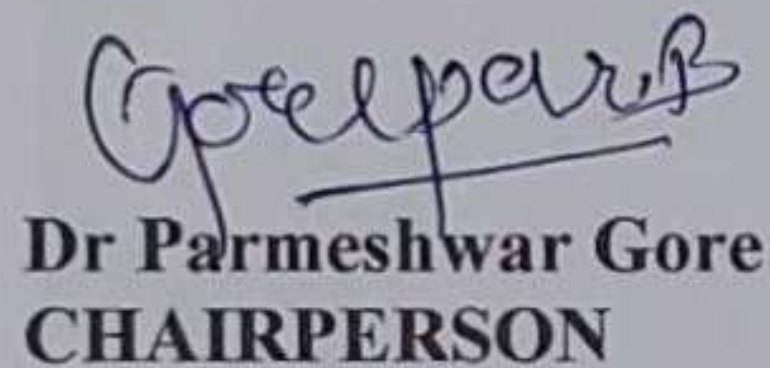 Dr Parmeshwar Gore
CHAIRPERSON